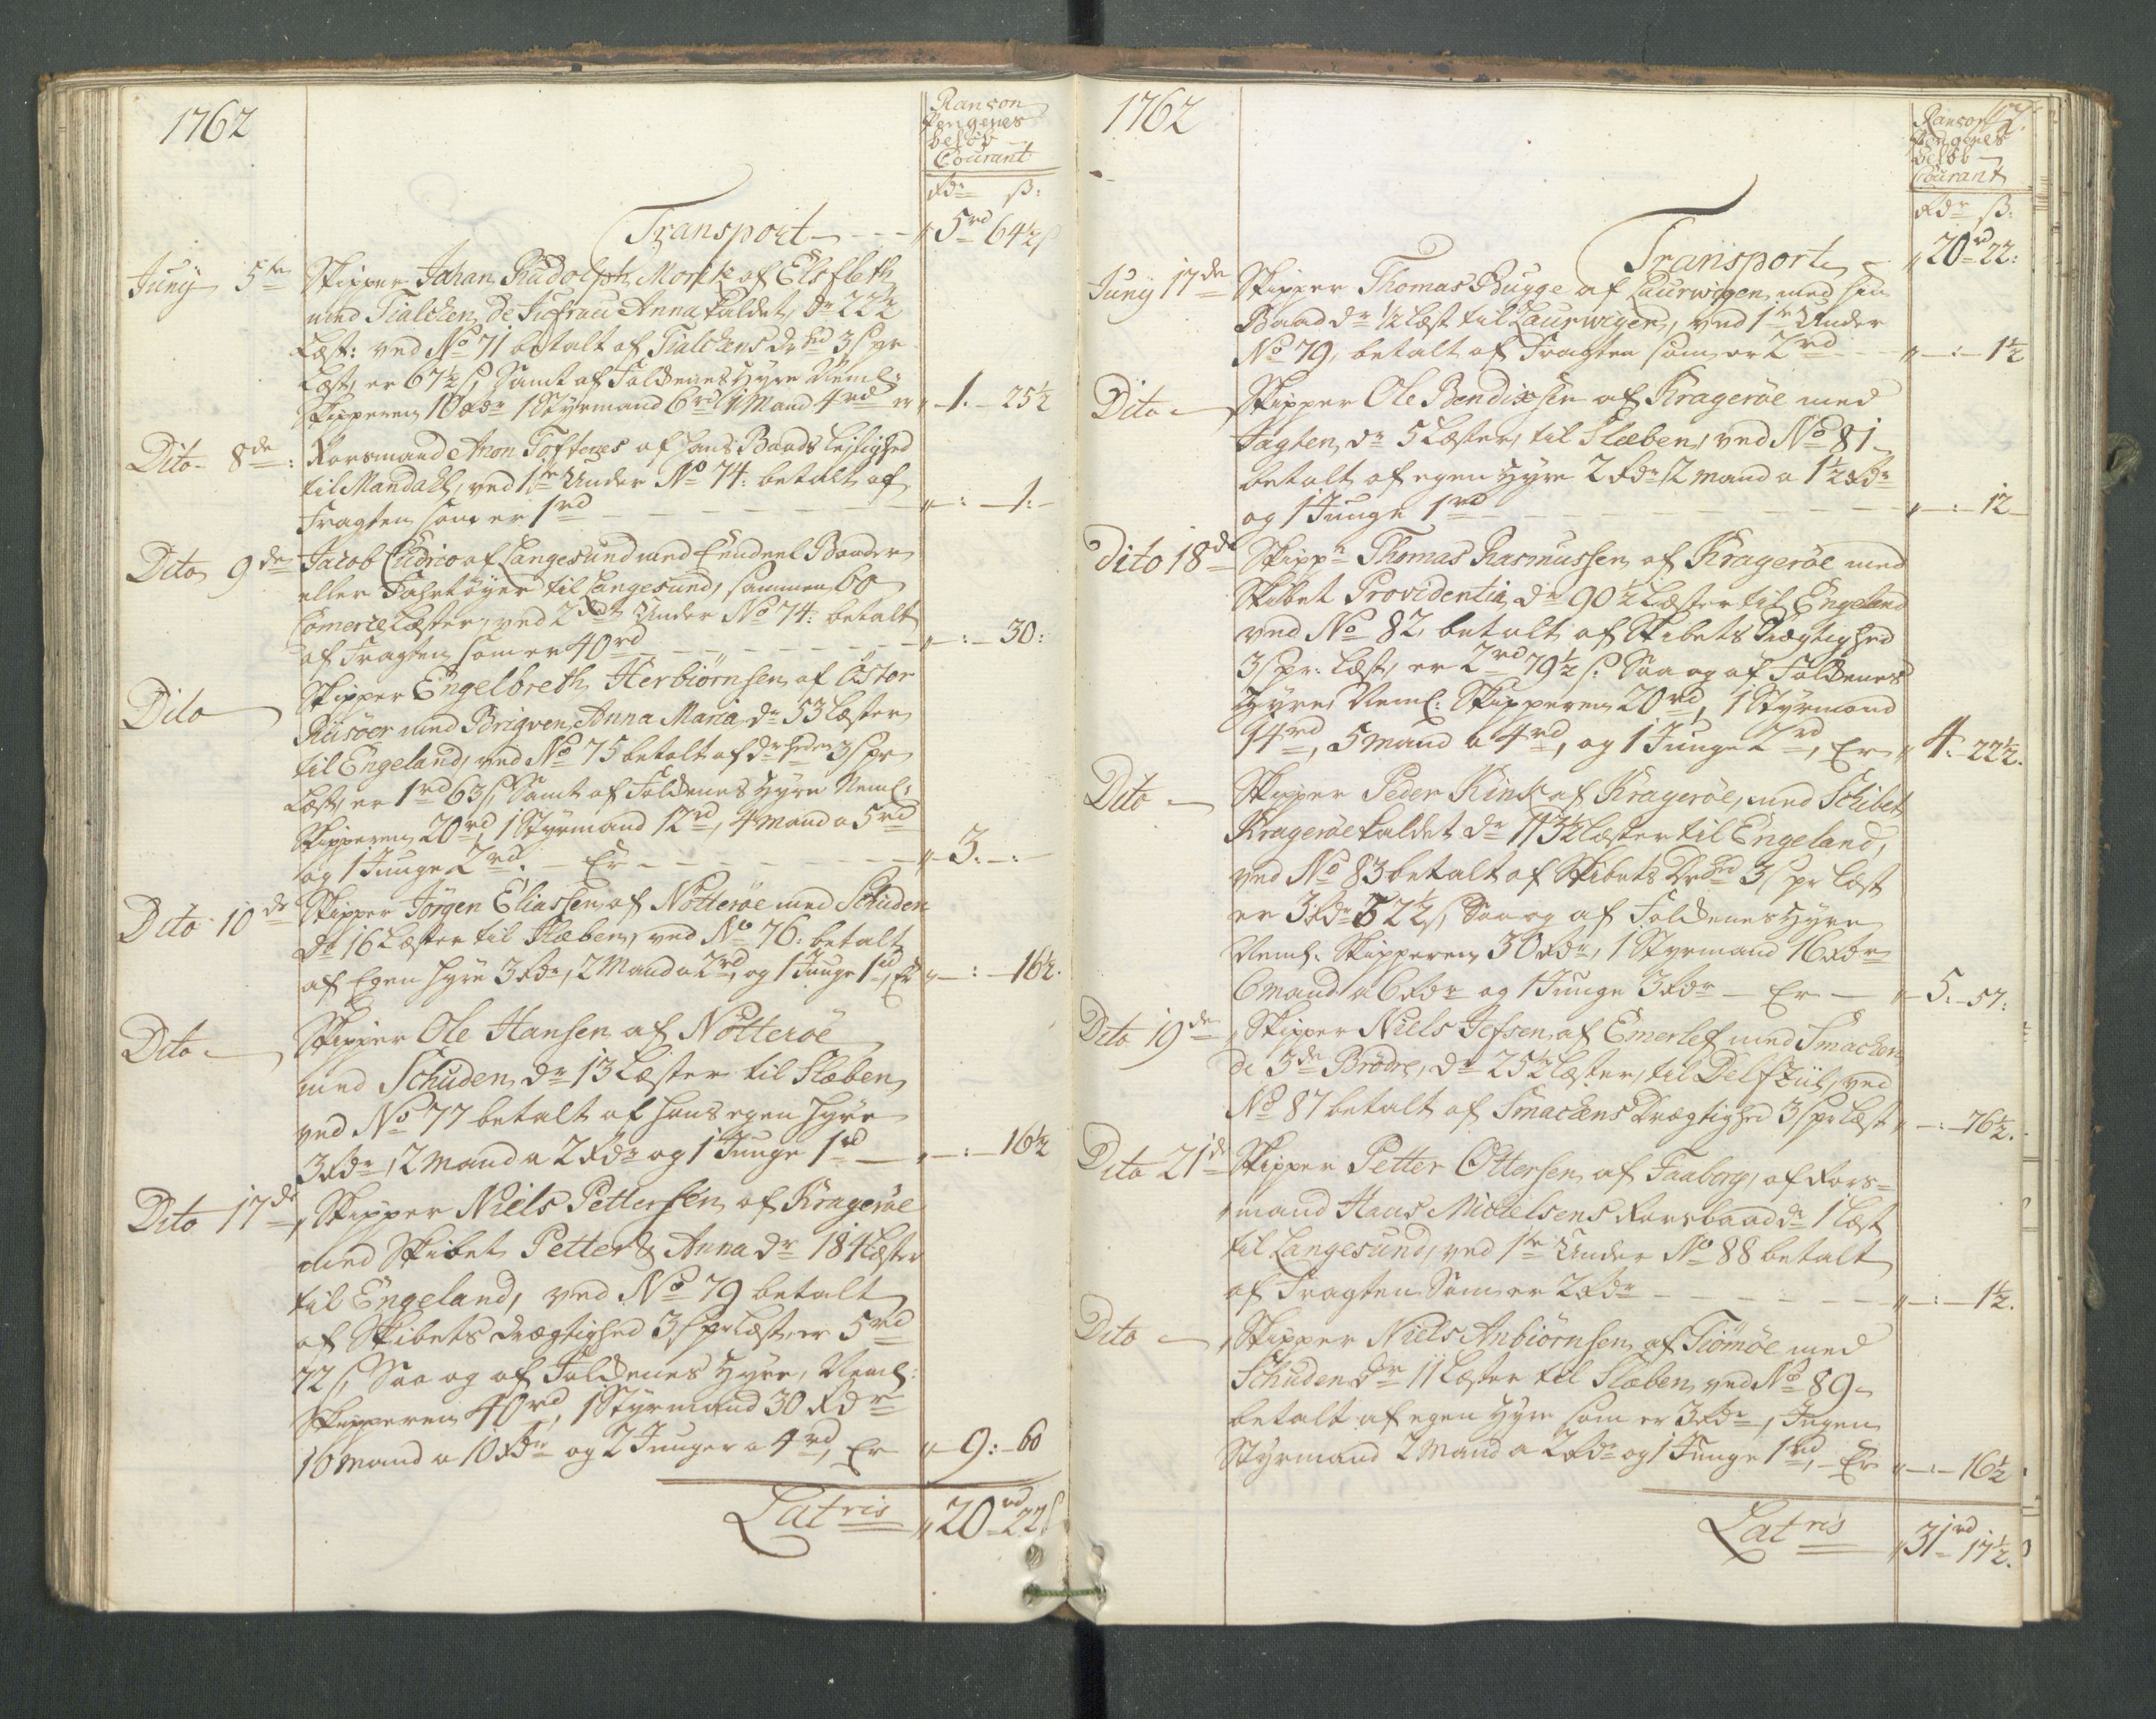 1762
Ranson
Pengenes
beløb
Courant
Rdr ß:
Transport - - - „ 5rd 64½ ß
Junij 5te Skipper Johan Rudolph Morik af Elsfleth
med Tialcken de Jufrau Anna kaldet, dr 22½
Læst: ved No 71 betalt af Tialckens drhed 3 ß pr
Læst, er 67½ ß, Samt af Folckenes Hyre Neml:
Skipperen 10 Rdr 1 Styrmand 6rd 1 Mand 4rd er „ 1. 25½
Dito 8de: Rorsmand Anon Toftenes af hans Baads Leylighed
til Mandahl, ved 1te Under No 74: betalt af
Fragten som er 1rd - - - „ : 1:
Dito 9de Jacob Cudrio af Langesund med Eendeel Baader
eller Fahrtøyer til Langesund, sammen 60
Comerce Læster, ved 2det Under No 74: betalt
af Fragten som er 40rd - - - „ : 30:
Dito Skipper Engelbreth Herbiørnsen af Öster
Riisöer med Brigven Anna Maria dr 53 Læster
til Engeland, ved No 75 betalt af drheden 3 ß pr
Læst, er 1rd 63 ß, Samt af Folckenes Hyre Neml:
Skipperen 20rd, 1 Styrmand 12rd, 4 Mand a 5rd
og 1 Junge 2rd. - Er - - - „ 3. - : -
Dito 10de Skipper Jörgen Eliassen af Nötteröe med Schuden
dr 16 Læster til Slæben, ved No 76: betalt
af Egen hyre 3 Rdr, 2 Mand a 2rd, og 1 Junge 1rd, Er „ : 16½.
Dito Skipper Ole Hansen af Nötteröe
med Schuden, dr 13 Læster til Slæben,
ved No 77 betalt af hans egen hyre
3 Rdr, 2 Mand a 2 Rdr og 1 Junge 1rd „ : 16½
Dito 17de, Skipper Niels Pettersen af Krageröe
med Skibet Petter & Anna dr 184 Læster
til Engeland, ved No 79 betalt
af Skibets drægtighed 3 ß pr Læst, er 5rd
72 ß, Saa og af Folckenes Hyre, Neml:
Skipperen 40rd, 1 Styrmand 30 Rdr
16 Mand a 10 Rdr og 2 Junger a 4rd, Er „ 9: 60
Latris „ 20rd 22 ß
1762
Ranson
Pengenes
beløb
Courant
Rdr ß:
Transport „ 20rd 22:
Junij 17de Skipper Thomas Bugge af Laurwigen med sin
Baad dr ½ Læst til Laurwigen, ved 1te Under
No 79, betalt af Fragten som er 2rd - - „ : 1½
Dito Skipper Ole Bendixsen af Krageröe med
Jagten, dr 5 Læster, til Slæben, ved No 81
betalt af egen Hyre 2 Rdr, 2 Mand a 1½ Rdr
og 1 Junge 1rd - - - „ : 12
Dito 18de Skippr Thomas Rasmussen af Krageröe med
Skibet Providentia, dr 90½ Læster til Engeland
ved No 82, betalt af Skibets Drægtighed
3 ß pr: Læst, er 2rd 79½ ß: Saa og af Folckenes
Hyre, Neml: Skipperen 20rd, 1 Styrmand
14rd, 5 Mand a 4rd, og 1 Junge 2rd, Er „ 4. 22½.
Dito Skipper Peder Kink af Krageröe, med Schibet
Krageröe kaldet dr 113½ Læster til Engeland,
ved No 83 betalt af Skibets Drhed 3 ß pr Læst
er 3 Rdr 52½ ß, Saa og af Folckenes Hyre
Neml. Skipperen 30 Rdr, 1 Styrmand 16 Rdr
6 Mand a 6 Rdr og 1 Junge 3 Rdr - Er - „ 5. 57:
Dito 19de, Skipper Niels Jefsen af Emerlef med Smacken
de 3de Brödre, dr 25½ Læster, til Delfziil, ved
No 87 betalt af Smackens Drægtighed 3 ß pr Læst „ : 76½.
Dito 21de Skipper Petter Ottersen af Faaborg, af Rors-
mand Hans Nickelsens Rorsbaad dr 1 Læst
til Langesund, ved 1te Under No 88 betalt
af Fragten Som er 2 Rdr - - - „ : 1½.
Dito, Skipper Niels Anbiörnsen af Tiömöe med
Schuden dr 11 Læster til Slæben, ved No 89
betalt af egen Hyre som er 3 Rdr, Ingen
Styrmand 2 Mand a 2 Rdr og 1 Junge 1rd, Er „ : 16½
Latris „ 31rd 17½.